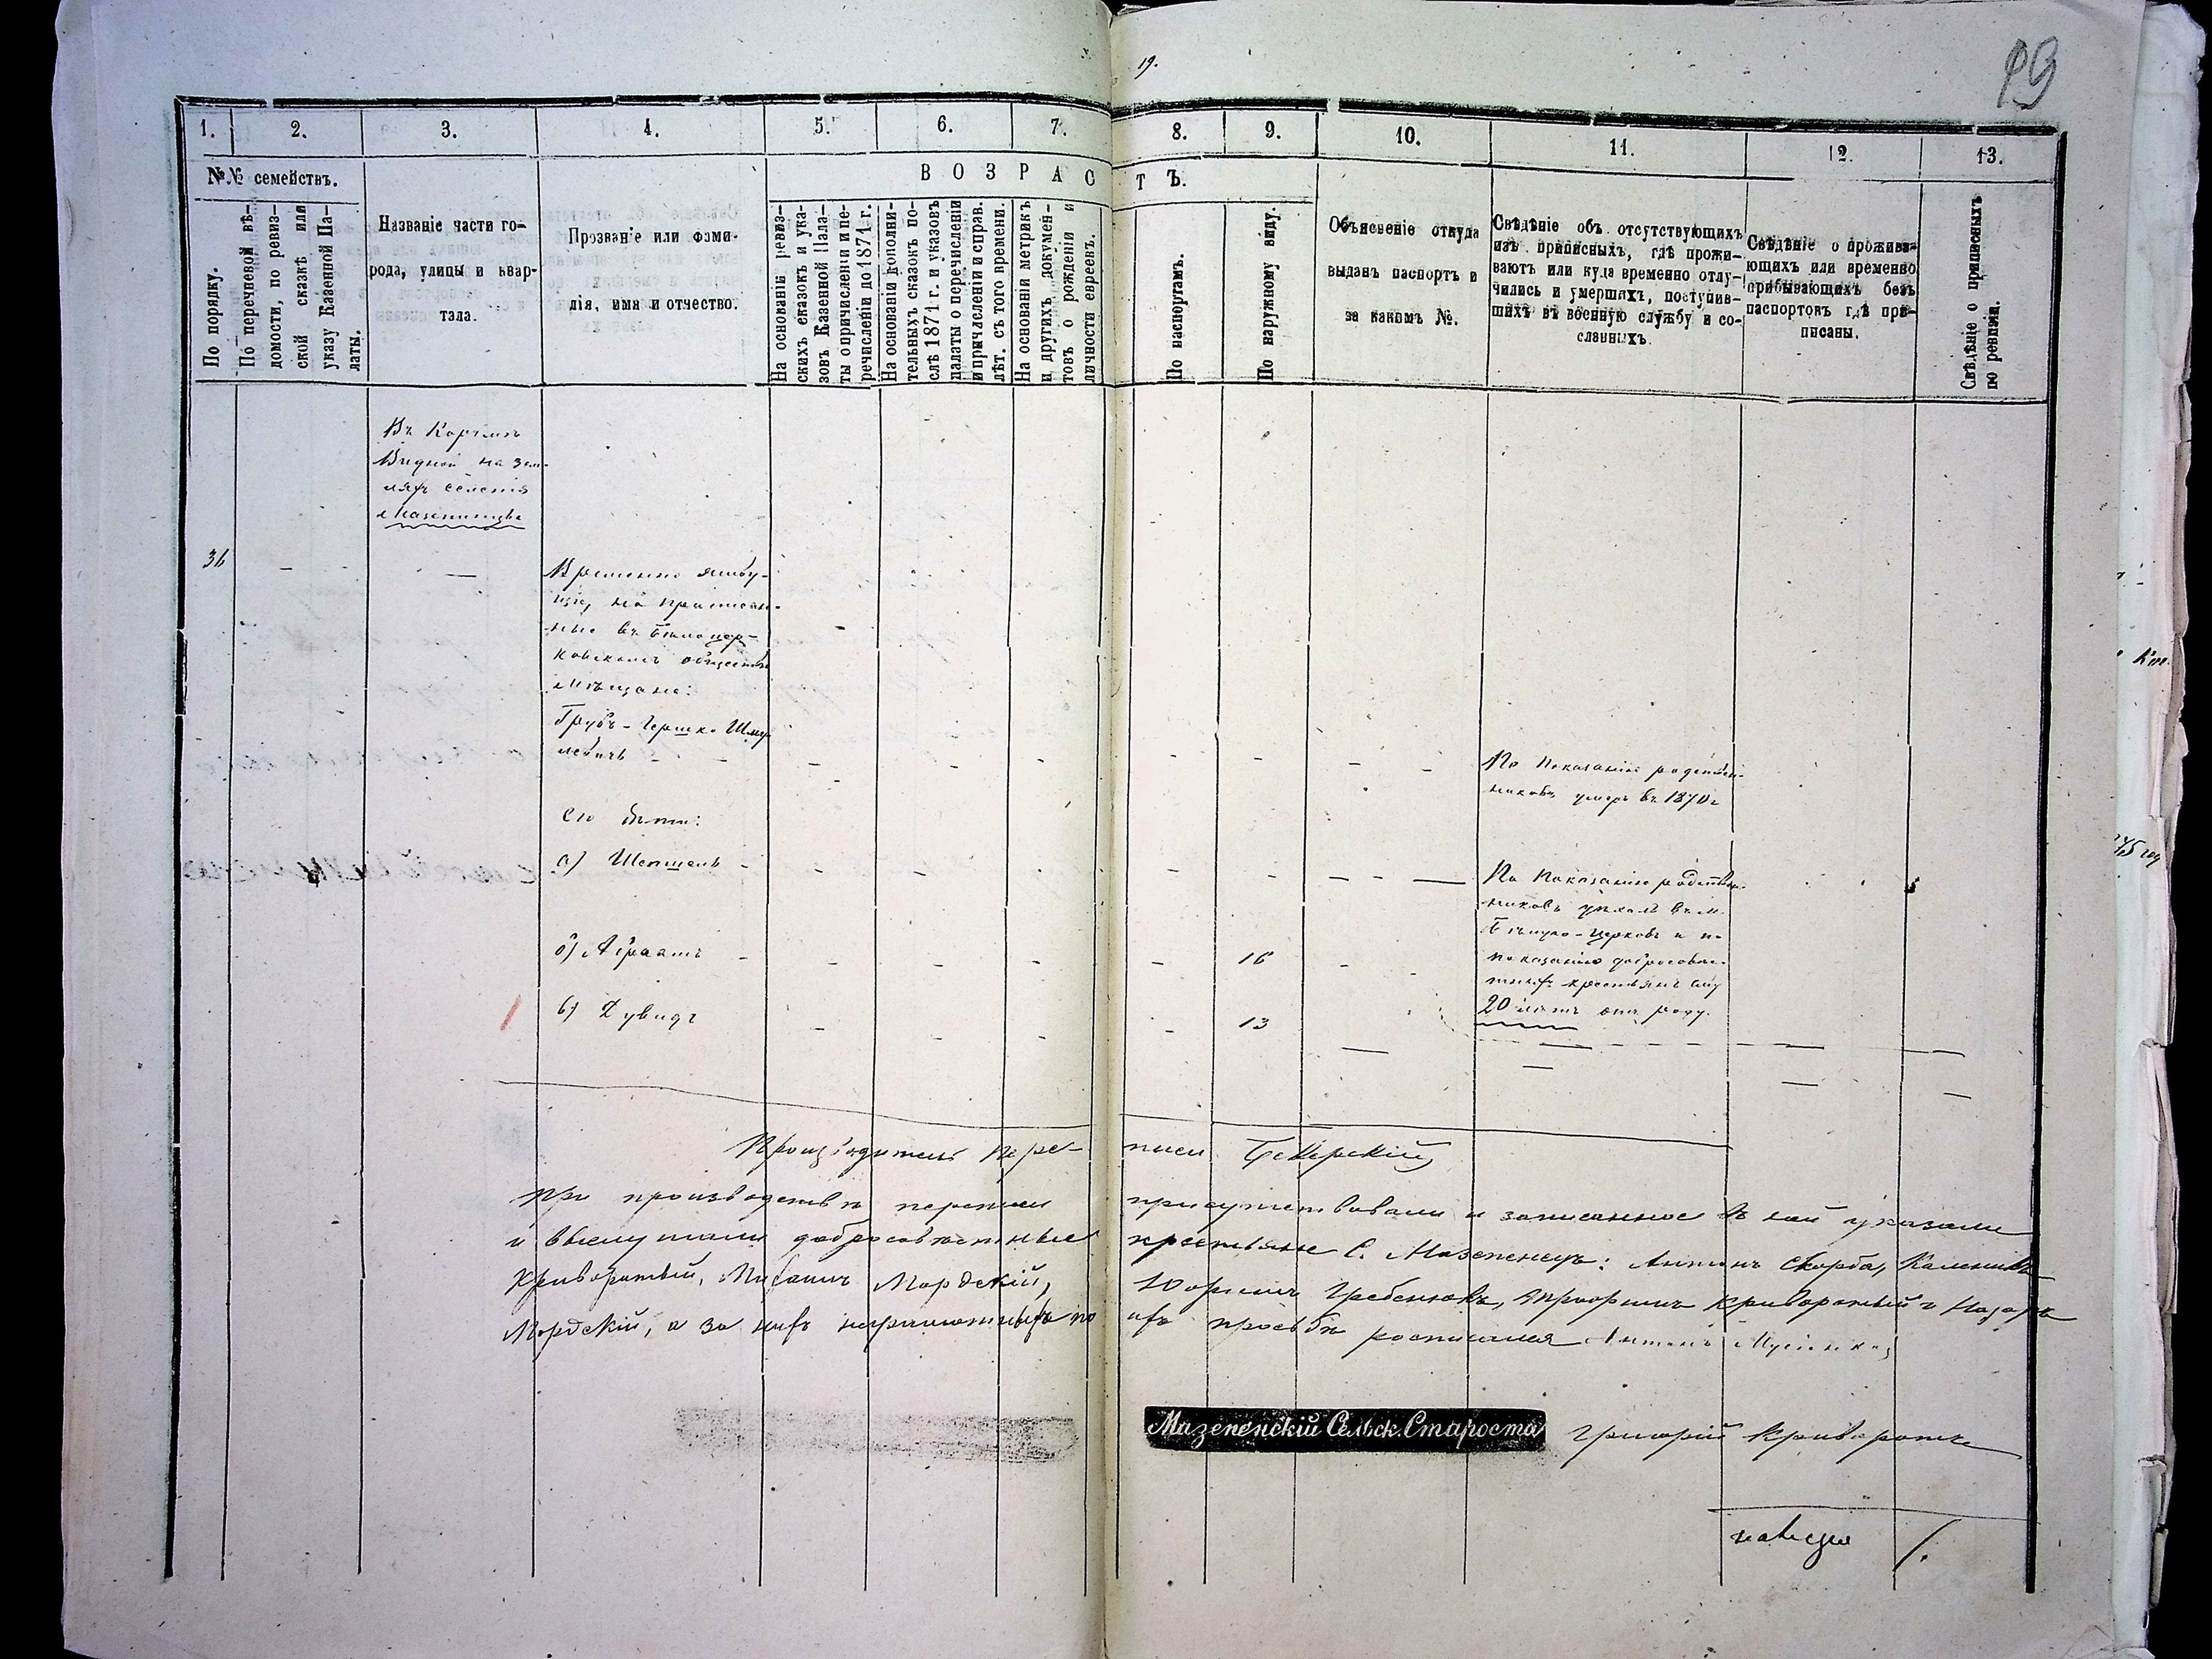 19.
19
1.
2.
3.
4.
5.
6.
7.
8.
9.
10.
11.
12.
13.
№№ семействъ.
ВОЗРАСТЪ.
По порядку.
По перечневой вѣ-
домости, по ревиз-
ской сказкѣ или
указу Казенной Па-
латы.
Названіе части го-
рода, улицы и квар-
тала.
Прозваніе или фами-
лія, имя и отчество.
На основаніи ревиз-
скихъ сказокъ и ука-
зовъ Казенной Пала-
ты о причислении и пе-
речисленіи до 1871 г.
На основаніи дополни-
тельныхъ сказокъ по-
слѣ 1871 г. и указовъ
палаты о перечисленіи
и причисленіи и справ.
лѣт. съ того времени.
На основаніи метрикъ
и другихъ докумен-
товъ о рожденіи и
личности евреевъ.
По паспортамъ.
По наружному виду.
Объясненіе откуда
выданъ паспортъ и
за какимъ №.
Свѣдѣніе объ отсутствующихъ
изъ приписныхъ, гдѣ прожи-
ваютъ или куда временно отлу-
чились и умершихъ, поступив-
шихъ въ военную службу и со-
сланныхъ.
Свѣдѣніе о прожива-
ющихъ или временно
прибывающихъ безъ
паспортовъ гдѣ при-
писаны.
Свѣдѣніе о приписныхъ
по ревизіи.
Въ Корчмѣ
Видной на зем-
ляхъ селенія
Мазепинцы
36
Временно живу-
щіе, но приписан-
ные въ Бѣлоцер-
ковскомъ обществѣ
мѣщане:
Грубъ - Гершко Шму-
левичъ
По показанію родствен-
никовъ умеръ въ 1870 г
Его дѣти:
а) Шепшель
По показанію родствен-
никовъ уѣхалъ въ м.
Бѣлую-Церковь и по
показанію добросовѣс-
тныхъ крестьянъ ему
20 лѣтъ отъ роду.
б) Абрамъ 16
в) Дувидъ 13
Производитель переписи
При производствѣ переписи присутствовали и записанное въ ней указали
и выслушали добросовѣстные крестьяне С. Мазепенецъ: Антонъ Скорба,
Криворотый, Мордскій, Юхимъ Гребенюкъ, Криворотый и Назаръ
Мордскій, а за нихъ неграмотныхъ по ихъ просьбѣ росписался Антонъ
Мазепенскій Сельск. Староста Григорій